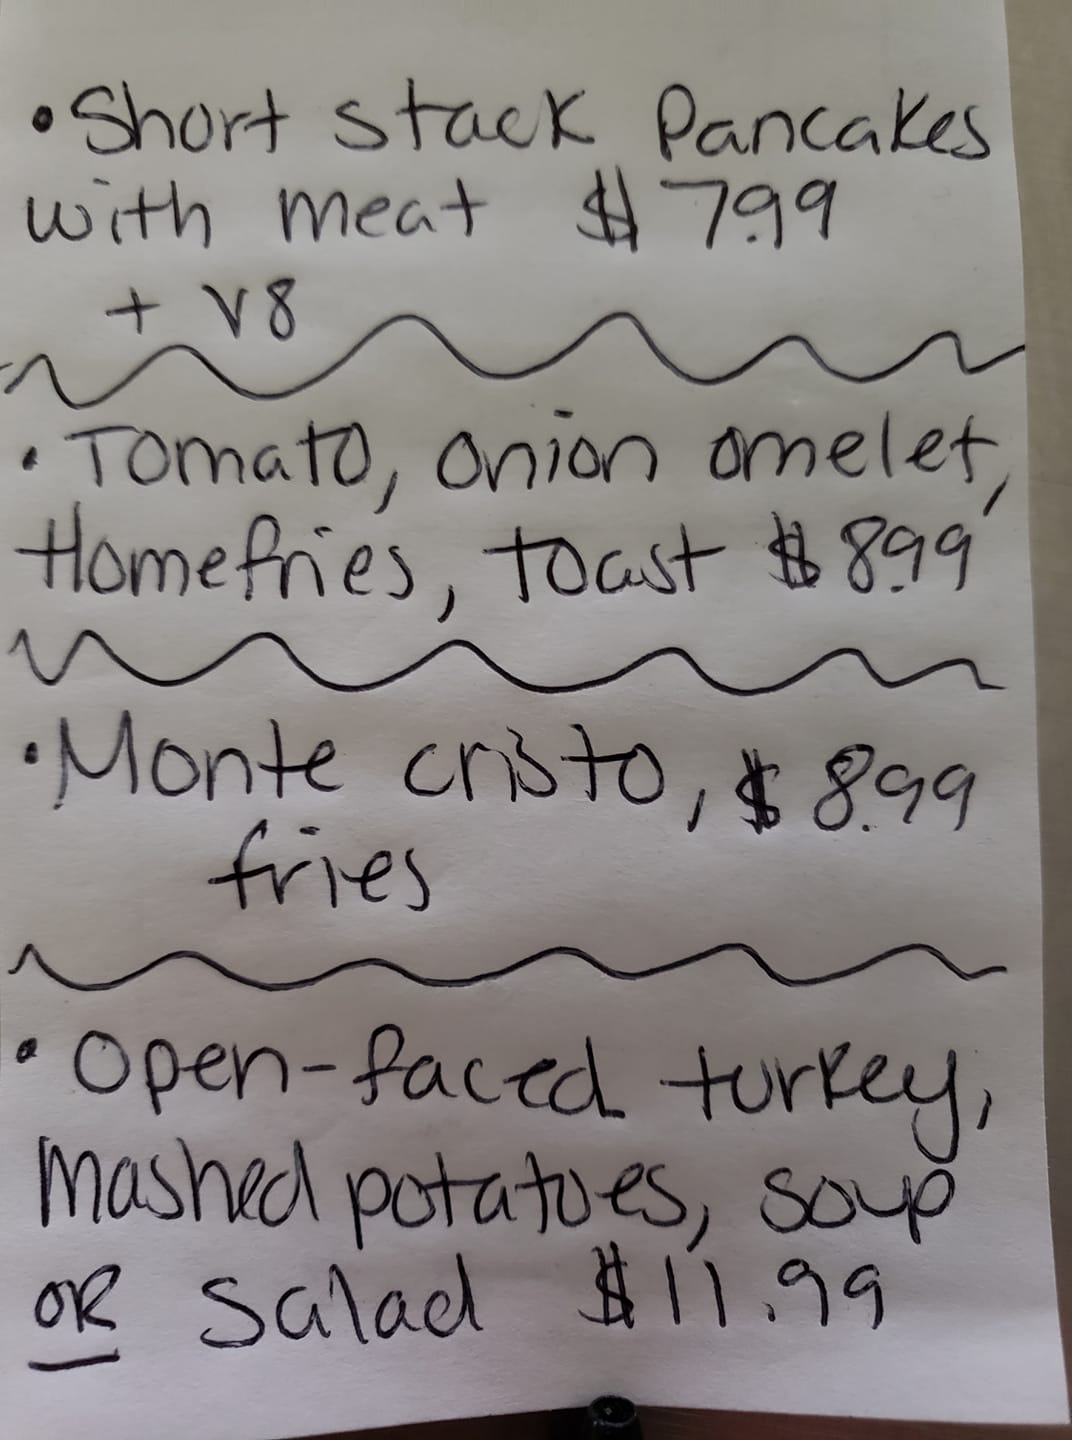 • Short stack Pancakes
with meat $ 7.99
+ V8
• Tomato, onion omelet,
Homefries, toast $ 8.99
• Monte cristo, $ 8.99
fries
• Open-faced turkey,
Mashed potatoes, soup
OR salad $ 11.99